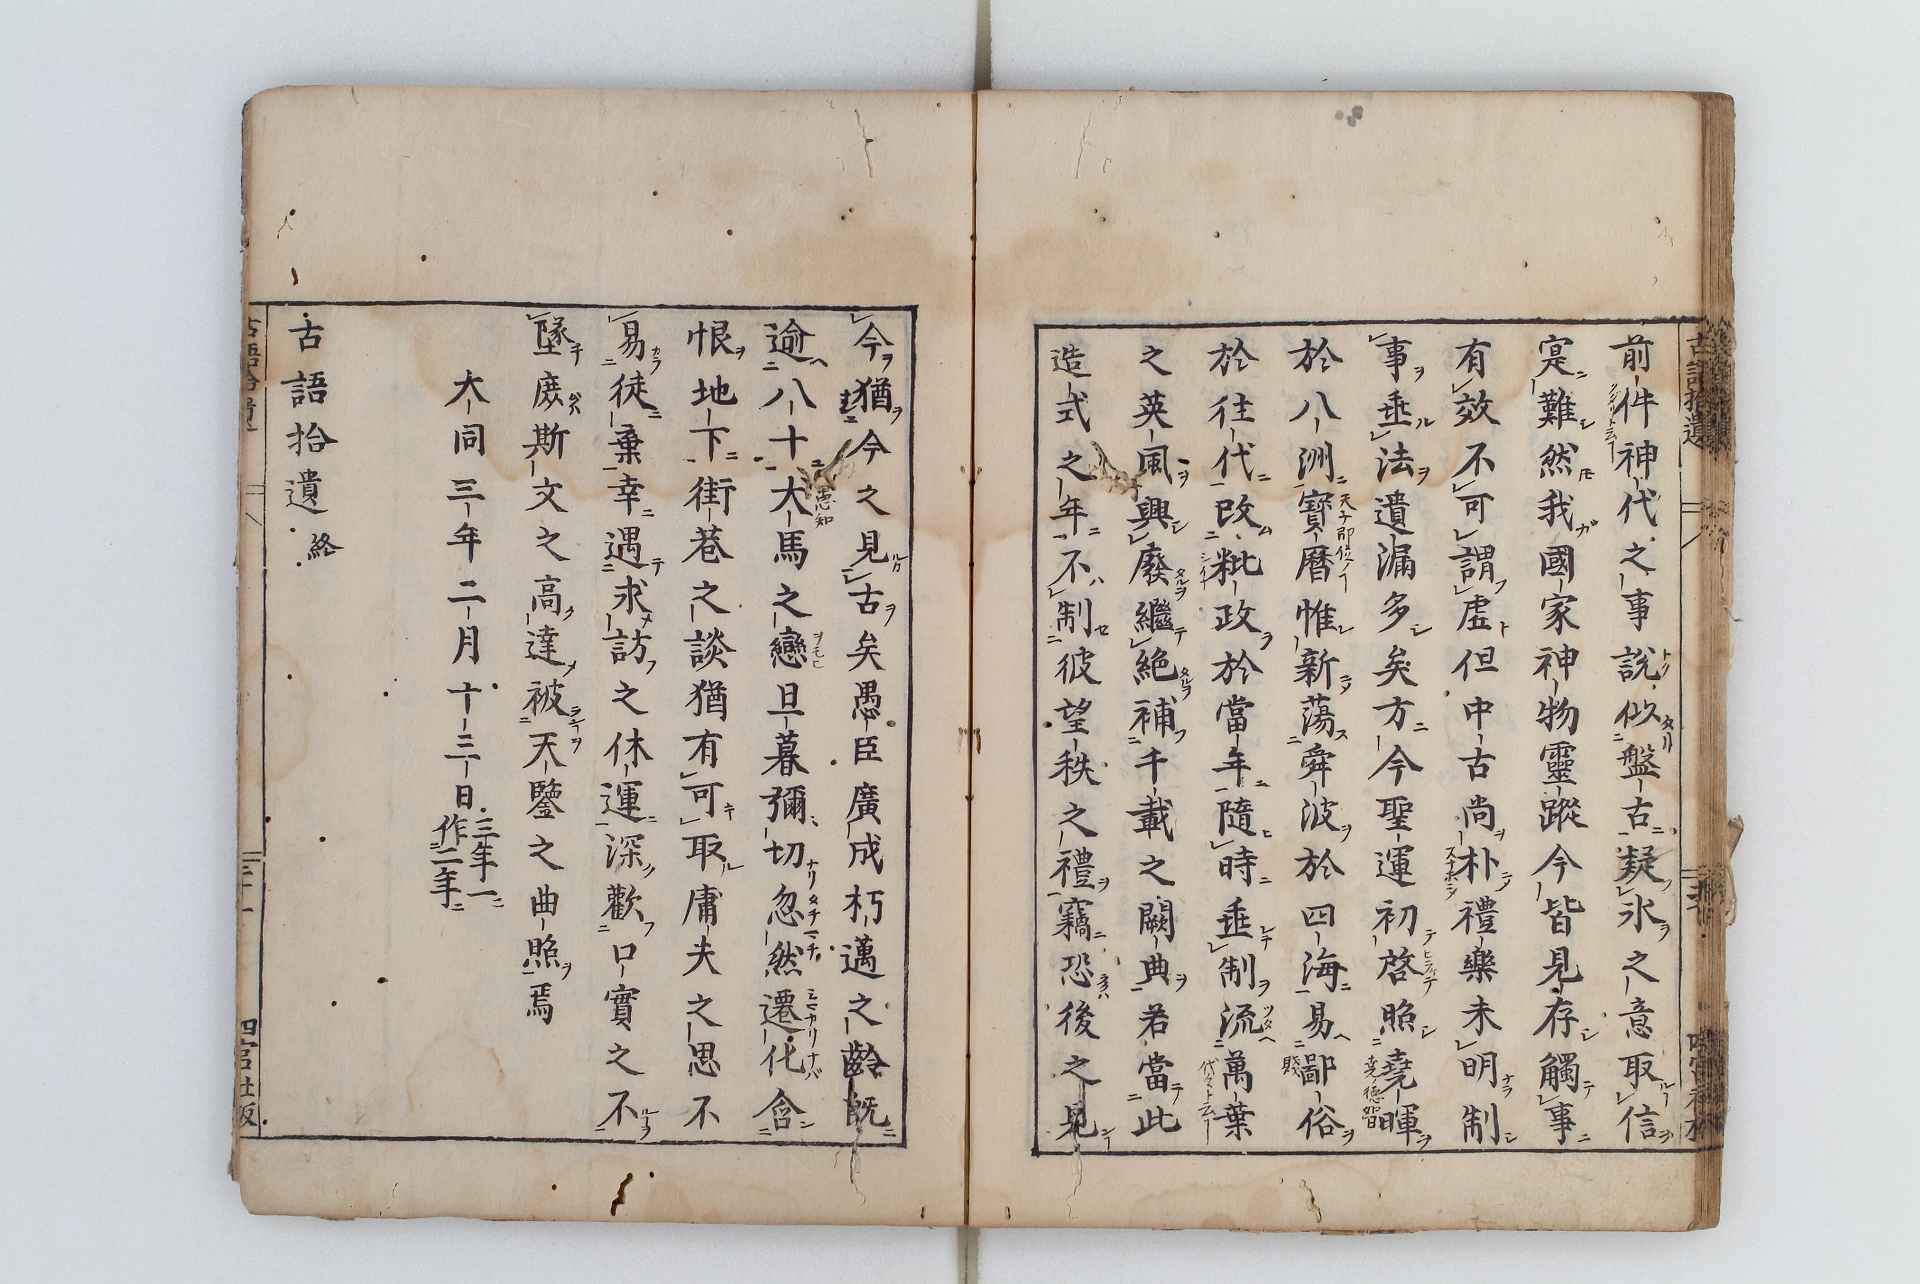 前件神代之事說似盤古疑氷之意取信
寔難然我國家神物靈蹤今皆見存觸事
有效不可謂虛但中古尚朴禮樂未明制
事垂法遺漏多矣方今聖運初啓照堯暉
於八洲寶曆惟新蕩舜波於四海易鄙俗
於往代改粃政於當年隨時垂制流萬葉
之英風興廢繼絕補千載之闕典若當此
造式之年不制彼望秩之禮竊恐後之見
今猶今之見古矣愚臣廣成朽邁之齡既
逾八十犬馬之戀旦暮彌切忽然遷化含
恨地下街巷之談猶有可取庸夫之思不
易徒棄幸遇求訪之休運深歡口實之不
墜庶斯文之高達被天鑒之曲照焉
大同三年二月十三日
三年一
作二年
古語拾遺終